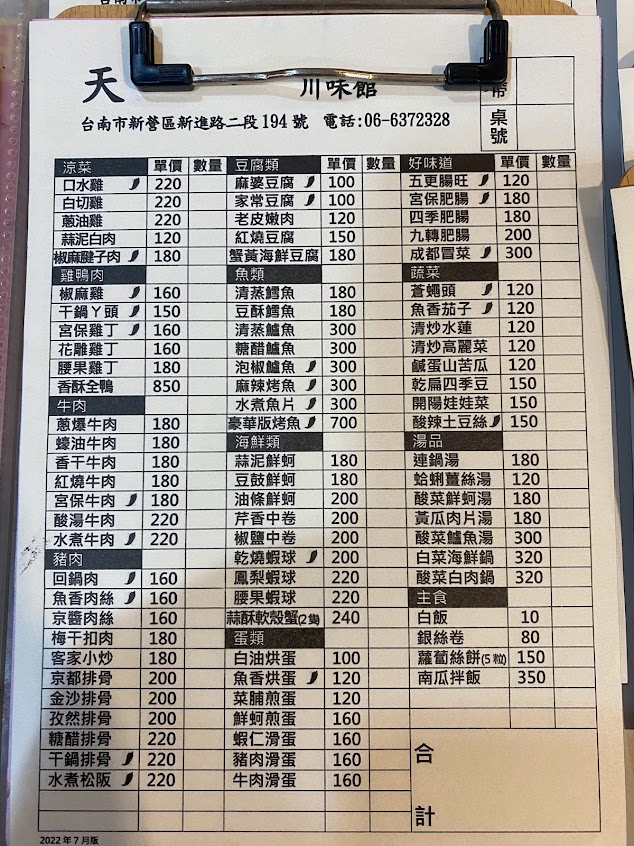 天 川味館
台南市新營區新進路二段194號 電話:06-6372328
桌號
涼菜 單價 數量
口水雞 220
白切雞 220
蔥油雞 220
蒜泥白肉 120
椒麻腱子肉 180
雞鴨肉
椒麻雞 160
干鍋丫頭 150
宮保雞丁 160
花雕雞丁 160
腰果雞丁 180
香酥全鴨 850
牛肉
蔥爆牛肉 180
蠔油牛肉 180
香干牛肉 180
紅燒牛肉 180
宮保牛肉 180
酸湯牛肉 220
水煮牛肉 220
豬肉
回鍋肉 160
魚香肉絲 160
京醬肉絲 160
梅干扣肉 180
客家小炒 180
京都排骨 200
金沙排骨 200
孜然排骨 200
糖醋排骨 220
干鍋排骨 220
水煮松阪 220
豆腐類 單價 數量
麻婆豆腐 100
家常豆腐 100
老皮嫩肉 120
紅燒豆腐 150
蟹黃海鮮豆腐 180
魚類
清蒸鱈魚 180
豆酥鱈魚 180
清蒸鱸魚 300
糖醋鱸魚 300
泡椒鱸魚 300
麻辣烤魚 300
水煮魚片 300
豪華版烤魚 700
海鮮類
蒜泥鮮蚵 180
豆鼓鮮蚵 180
油條鮮蚵 200
芹香中卷 200
椒鹽中卷 200
乾燒蝦球 200
鳳梨蝦球 220
腰果蝦球 220
蒜酥軟殼蟹(2隻) 240
蛋類
白油烘蛋 100
魚香烘蛋 120
菜脯煎蛋 120
鮮蚵煎蛋 160
蝦仁滑蛋 160
豬肉滑蛋 160
牛肉滑蛋 160
好味道 單價 數量
五更腸旺 120
宮保肥腸 180
四季肥腸 180
九轉肥腸 200
成都冒菜 300
蔬菜
蒼蠅頭 120
魚香茄子 120
清炒水蓮 120
清炒高麗菜 120
鹹蛋山苦瓜 120
乾扁四季豆 150
開陽娃娃菜 150
酸辣土豆絲 150
湯品
連鍋湯 180
蛤蜊薑絲湯 120
酸菜鮮蚵湯 180
黃瓜肉片湯 180
酸菜鱸魚湯 300
白菜海鮮鍋 320
酸菜白肉鍋 320
主食
白飯 10
銀絲卷 80
蘿蔔絲餅(5粒) 150
南瓜拌飯 350
合
計
2022年7月版